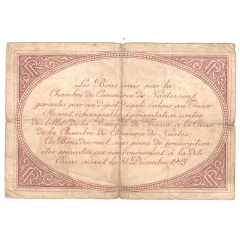 Les Bons émis par la
Chambre de Commerce de Nantes, sont
garantis par un dépôt d'égale valeur au Trésor
Ils sont échangeables à présentation contre
des billets de la Banque de France à la Caisse
de la Chambre de Commerce de Nantes.
Ces Bons devront sous peine de prescription
être présentés au remboursement à la dite
Caisse avant le 31 Décembre